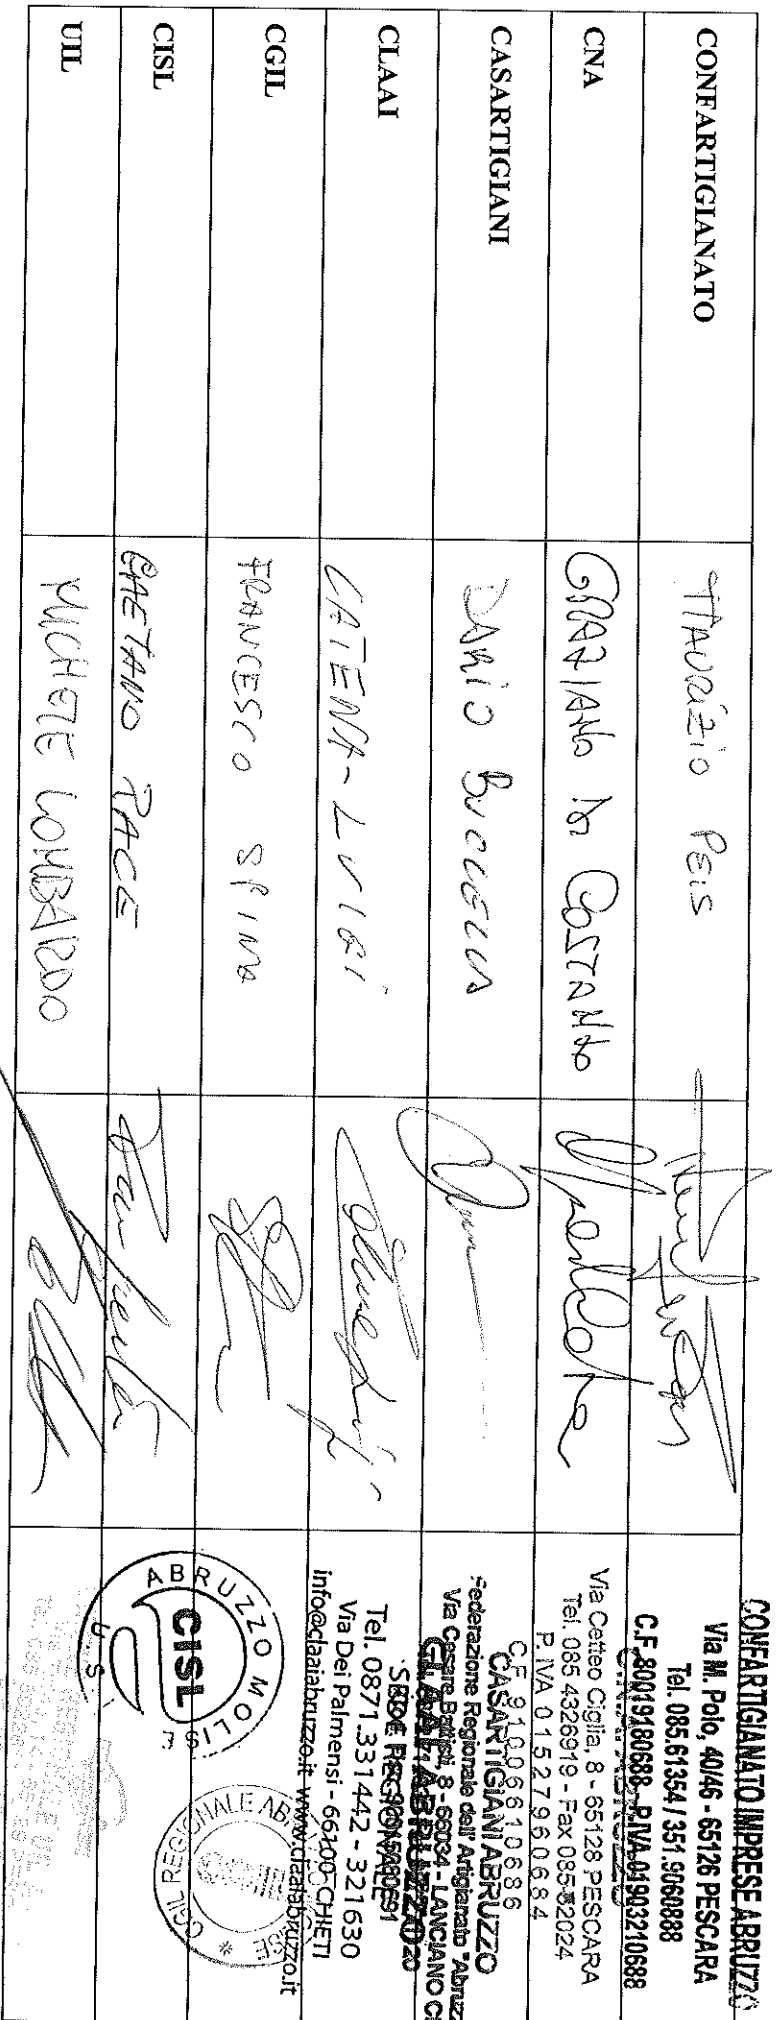 CONFARTIGIANATO
MAURIZIO PEIS
CONFARTIGIANATO IMPRESE ABRUZZO
Via M. Polo, 40/46 - 65126 PESCARA
Tel. 085.61354 / 351.9060888
C.F. 80019180688 - P.IVA 01903210688
CNA
GRAZIANO DI COSTANZO
Via Cetteo Ciglia, 8 - 65128 PESCARA
Tel. 085 4326919 - Fax 085
P. IVA 01527960684
CASARTIGIANI
DARIO BUCCELLA
C.F. 91006610686
CASARTIGIANI ABRUZZO
Federazione Regionale dell'Artigianato "Abruzz
Via Cesare Battisti, 8 - 66034 - LANCIANO
CLAAI
CATENA - LUIGI
CLAAI ABRUZZO
SEDE REGIONALE
Tel. 0871.331442 - 321630
Via Dei Palmensi - 66100 - CHIETI
info@claaiabruzzo.it www.claaiabruzzo.it
CGIL
FRANCESCO SPINA
CGIL REGIONALE
CISL
GAETANO PACE
ABRUZZO MOLISE
CISL
U.S.
UIL
MICHELE LOMBARDO